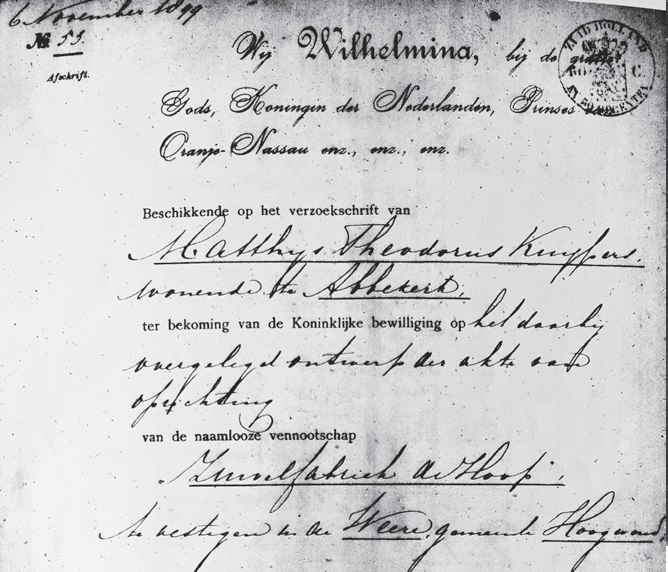 6 November 1899
No 55.
Afschrift.
Wij Wilhelmina, bij de gratie
Gods, Koningin der Nederlanden, Prinses van
Oranje-Nassau enz., enz., enz.
Beschikkende op het verzoekschrift van
Matthijs Theodorus Kuijpers,
wonende te Abbekerk,
ter bekoming van de Koninklijke bewilliging op het daarbij
overgelegd ontwerp der akte van
oprichting
van de naamlooze vennootschap
"Zuivelfabriek de Hoop",
te vestigen in de Weere, gemeente Hoogwoud,
ZUID HOLLAND